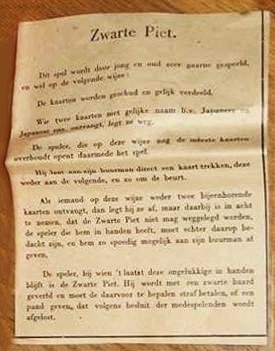 Zwarte Piet.
Dit spel wordt door jong en oud zeer gaarne gespeeld,
en wel op de volgende wijze:
De kaarten worden geschud en gelijk verdeeld.
Wie twee kaarten met gelijke naam b.v. Japanees en
Japanees ontvangt, legt ze weg.
De speler, die op deze wijze nog de meeste kaarten
overhoudt opent daarmede het spel.
Hij laat aan zijn buurman direct een kaart trekken, deze
weder aan de volgende, en zo om de beurt.
Als iemand op deze wijze weder twee bijeenhorende
kaarten ontvangt, dan legt hij ze af, maar daarbij is in acht
te nemen, dat de Zwarte Piet niet mag weggelegd worden,
de speler die hem in handen heeft, moet echter daarop be-
dacht zijn, en hem zo spoedig mogelijk aan zijn buurman af
geven.
De speler, bij wien 't laatst deze ongelukkige in handen
blijft is de Zwarte Piet. Hij wordt met een zwarte baard
geverfd en moet de daarvoor te bepalen straf betalen, of een
pand geven, dat volgens besluit der medespelenden wordt
afgelost.